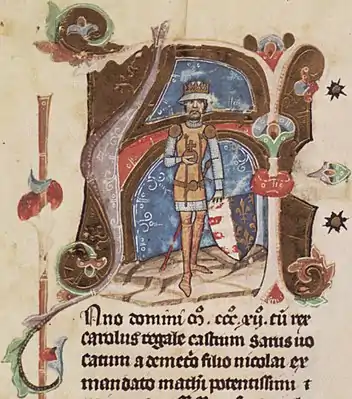 Anno domini Mº. CCCº. xijº. cū rex
carolus regale castrum sarus uo
catum a demetrio filio nicolai ex
mandato mathei potentissimi t